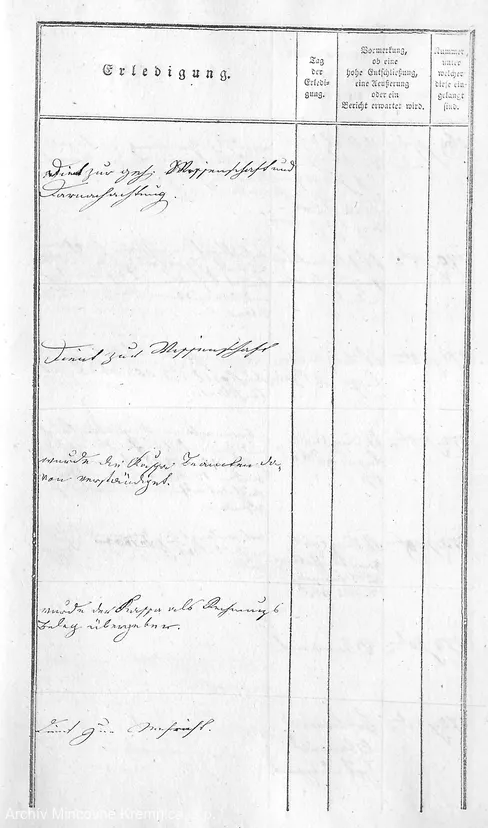 Erledigung.
Tag
der
Erledi-
gung.
Vormerkung,
ob eine
hohe Entschließung,
eine Aeußerung
oder ein
Bericht erwartet wird.
Nummer,
unter
welcher
diese ein-
gelangt
sind.
Dient zur geh. Wissenschaft und
Darnachachtung.
Dient zur Wissenschaft
wurde die Kassa Beamten da,
von verständiget.
wurde der Kassa als Rechnungs
Beleg übergeben.
Dient zur Nachricht.
Archiv Mincovne Kremnica